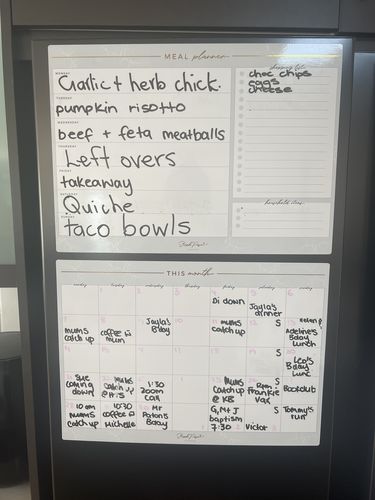 MEAL planner
MONDAY
Garlic + herb chick.
TUESDAY
pumpkin risotto
WEDNESDAY
beef + feta meatballs
THURSDAY
Left overs
FRIDAY
takeaway
SATURDAY
Quiche
SUNDAY
taco bowls
shopping list
choc chips
eggs
cheese
household items
THIS month
monday tuesday wednesday thursday friday saturday sunday
Di down
Jayla's
dinner
mums
catch up
coffee
mum
Jayla's
B'day
mums
catch up
S
Adeline's
Bday
lunch
S
Leo's
Bday
Lunc
Sue
coming
down
mums
catch up
1:30
zoom
call
Mums
catchup
@ KB
S
Frankie
Vax
Bookclub
10 am
mums
catch up
10:30
coffee
Michelle
Mr
Paton's
Bday
G, M + J
baptism
7:30
S
Victor
Tommy's
run